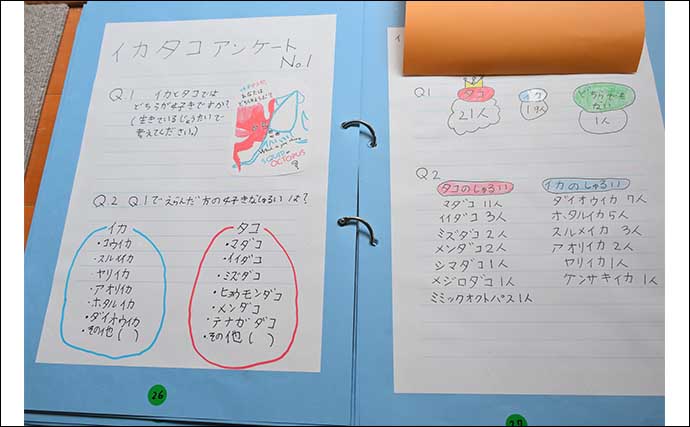 イカタコアンケート
No.1
Q1 イカとタコでは
どちらが好きですか?
(生きているじょうたいで
考えてください。)
SQUID
OCTOPUS
Q.2 Q1でえらんだ方の好きなしゅるいは?
イカ
・コウイカ
・スルメイカ
・ヤリイカ
・アオリイカ
・ホタルイカ
・ダイオウイカ
・その他( )
タコ
・マダコ
・イイダコ
・ミズダコ
・ヒョウモンダコ
・メンダコ
・テナガダコ
・その他( )
26
Q1
タコ
21人
イカ
19人
どちらでも
ない
1人
Q2
タコのしゅるい
マダコ 11人
イイダコ 3人
ミズダコ 2人
メンダコ 2人
シマダコ 1人
メジロダコ 1人
ミミックオクトパス 1人
イカのしゅるい
ダイオウイカ 7人
ホタルイカ 5人
スルメイカ 3人
アオリイカ 2人
ヤリイカ 1人
ケンサキイカ 1人
27